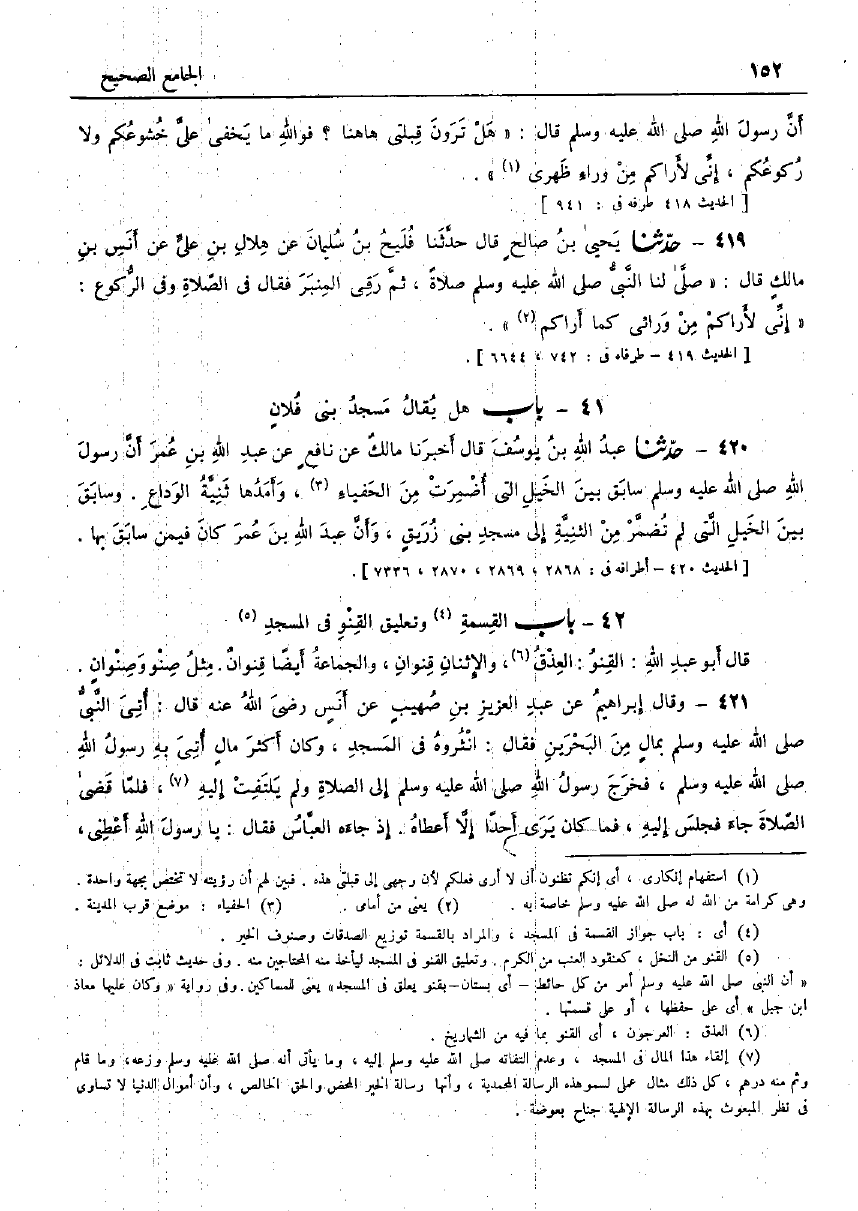 ١٥٢ الجامع الصحيح
أنَّ رسولَ اللهِ صلى الله عليه وسلم قال : « هَلْ تَرَونَ قِبلتى هاهنا ؟ فواللهِ ما يَخفىٰ علىَّ خُشوعُكم ولا
رُكوعُكم ، إنِّى لأراكم مِنْ وراءِ ظَهرى (١) » .
[ الحديث ٤١٨ طرفه فى : ٩٤١ ]
٤١٩ – حدّثنا يَحيىٰ بنُ صالحٍ قال حدَّثَنا فُلَيحُ بنُ سُلَيمانَ عن هِلالِ بنِ علىٍّ عن أنَسِ بنِ
مالكٍ قال : « صلَّىٰ لنا النَّبىُّ صلى الله عليه وسلم صلاةً ، ثمَّ رَقِىَ المِنبَرَ فقال فى الصَّلاةِ وفى الرُّكوع :
« إنِّى لأَراكمْ مِنْ وَرائى كما أراكم (٢) » .
[ الحديث ٤١٩ – طرفاه فى : ٧٤٢ ، ٦٦٤٤ ] .
٤١ – باب هل يُقالُ مَسجدُ بنى فُلانٍ
٤٢٠ – حدّثنا عبدُ اللهِ بنُ يوسُفَ قال أخبرَنا مالكٌ عن نافعٍ عن عبدِ اللهِ بنِ عُمرَ أنَّ رسولَ
اللهِ صلى الله عليه وسلم سابق بينَ الخَيلِ التى أُضْمِرَتْ مِنَ الحَفياءِ (٣) ، وَأمَدُها ثَنِيَّةُ الوَداعِ . وسابَقَ
بينَ الخَيلِ الَّتى لم تُضمَّرْ مِنَ الثنِيَّةِ إلى مسجدِ بنى زُرَيقٍ ، وَأنَّ عبدَ اللهِ بنَ عُمرَ كانَ فيمن سابَقَ بها .
[ الحديث ٤٢٠ – أطرافه فى : ٢٨٦٨ ، ٢٨٦٩ ، ٢٨٧٠ ، ٧٣٣٦ ] .
٤٢ – باب القِسمةِ (٤) وتعليق القِنْوِ فى المسجدِ (٥)
قال أبو عبدِ اللهِ : القِنوُ : العِذْقُ (٦) ، والإثنانِ قِنوانِ ، والجماعةُ أيضًا قِنوانٌ . مِثلُ صِنوٍ وَصِنوانٍ .
٤٢١ – وقال إبراهيمُ عن عبدِ العزيزِ بنِ صُهيبٍ عن أنَسٍ رضىَ اللهُ عنه قال : أُتِىَ النَّبىُّ
صلى الله عليه وسلم بمالٍ مِنَ البَحْرَينِ فقال : انْثُروهُ فى المَسجدِ ، وكان أكثرَ مالٍ أُتِىَ بهِ رسولُ اللهِ
صلى الله عليه وسلم ، فخرَجَ رسولُ اللهِ صلى الله عليه وسلم إلى الصلاةِ ولم يَلتَفِتْ إليهِ (٧) ، فلمّا قضىٰ
الصَّلاةَ جاءَ فجلسَ إليهِ ، فما كان يَرَى أحدًا إلَّا أعطاهُ . إذ جاءه العبَّاسُ فقال : يا رسولَ اللهِ أعْطِنى ،
(١) استفهام إنكارى ، أى إنكم تظنون أنى لا أرى فعلكم لأن وجهى إلى قبلتى هذه . فبين لهم أن رؤيته لا تختص بجهة واحدة .
وهى كرامة من الله له صلى الله عليه وسلم خاصة به . (٢) يعنى من أمامى . (٣) الحفياء : موضع قرب المدينة .
(٤) أى : باب جواز القسمة فى المسجد ، والمراد بالقسمة توزيع الصدقات وصنوف الخير .
(٥) القنو من النخل ، كعنقود العنب من الكرم . وتعليق القنو فى المسجد ليأخذ منه المحتاجين منه . وفى حديث ثابت فى الدلائل :
« أن النبى صلى الله عليه وسلم أمر من كل حائط – أى بستان – بقنو يعلق فى المسجد » يعنى للمساكين . وفى رواية « وكان عليها معاذ
ابن جبل » أى على حفظها ، أو على قسمتها .
(٦) العذق : العرجون ، أى القنو بما فيه من الشماريخ .
(٧) إلقاء هذا المال فى المسجد ، وعدم التفاته صلى الله عليه وسلم إليه ، وما يأتى أنه صلى الله عليه وسلم وزعه، وما قام
وثم منه درهم ، كل ذلك مثال عملى لسمو هذه الرسالة المحمدية ، وأنها رسالة الخير المحض والحق الخالص ، وأن أموال الدنيا لا تساوى
فى نظر المبعوث بهذه الرسالة الإلهية جناح بعوضة .